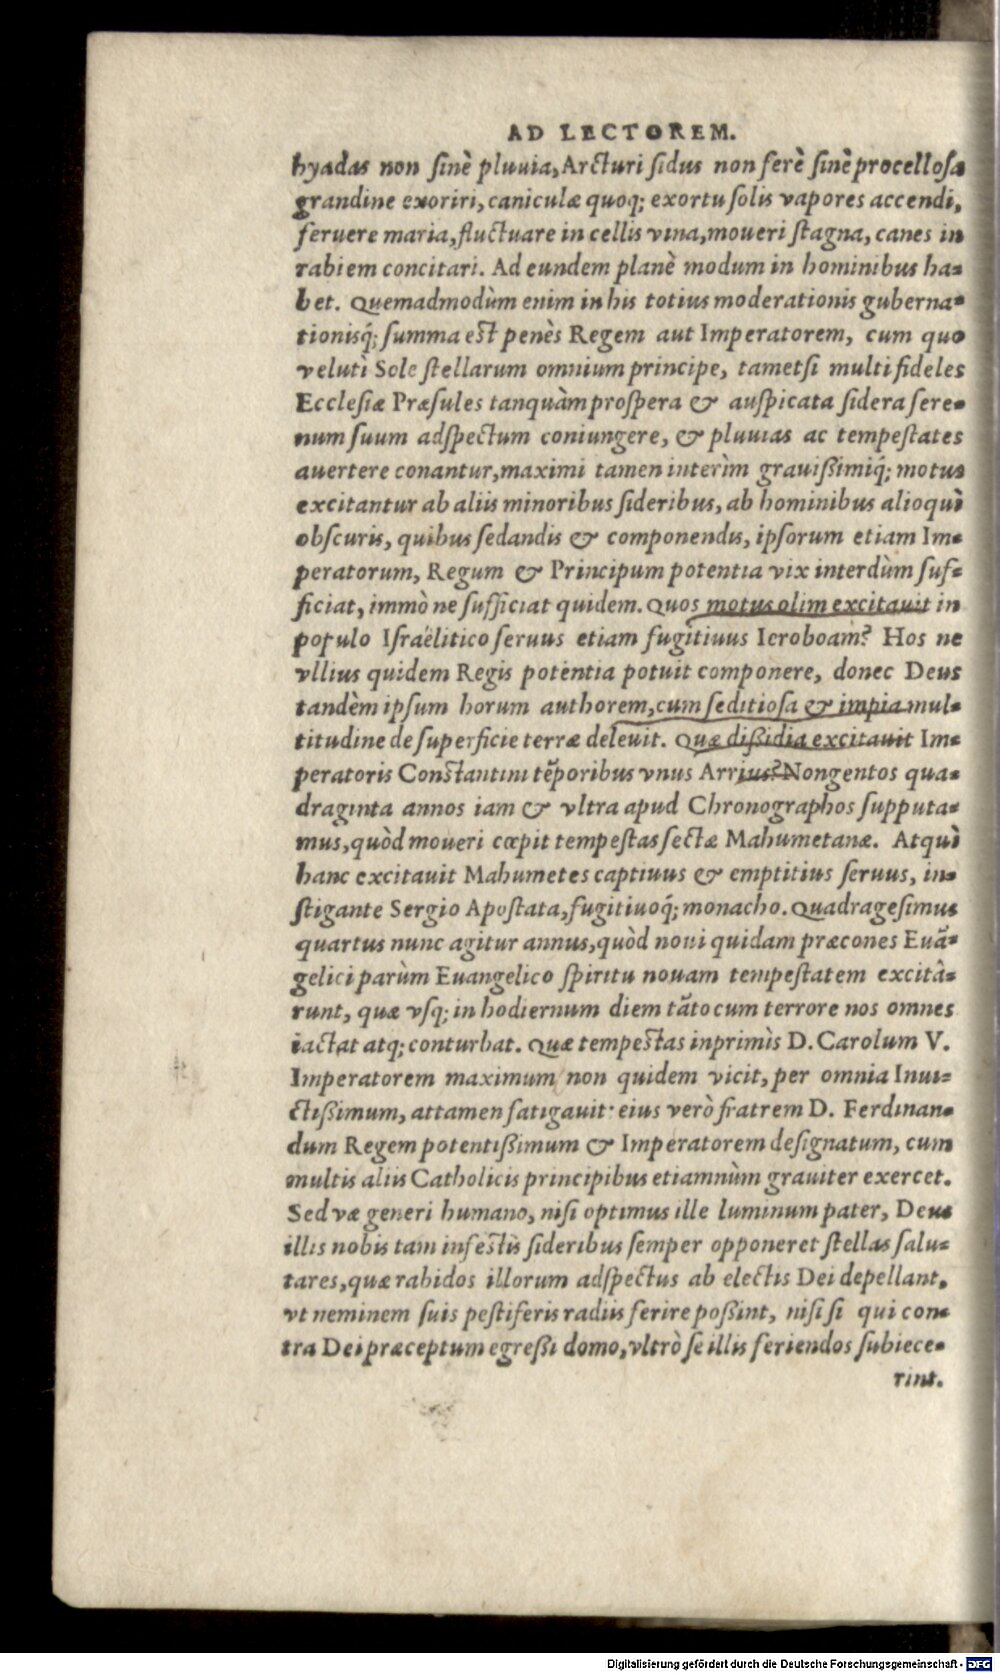 AD LECTOREM.
hyadas non sinè pluuia, Arcturi sidus non ferè sinè procellosa
grandine exoriri, caniculæ quoq; exortu solis vapores accendi,
feruere maria, fluctuare in cellis vina, moueri stagna, canes in
rabiem concitari. Ad eundem planè modum in hominibus ha-
bet. Quemadmodùm enim in his totius moderationis guberna-
tionisq́; summa est penès Regem aut Imperatorem, cum quo
velutì Sole stellarum omnium principe, tametsi multi fideles
Ecclesiæ Præsules tanquàm prospera & auspicata sidera sere-
num suum adspectum coniungere, & pluuias ac tempestates
auertere conantur, maximi tamen interìm grauißimiq́; motus
excitantur ab aliis minoribus sideribus, ab hominibus alioquì
obscuris, quibus sedandis & componendis, ipsorum etiam Im-
peratorum, Regum & Principum potentia vix interdùm suf-
ficiat, immò ne sufficiat quidem. Quos motus olim excitauit in
populo Israëlitico seruus etiam fugitiuus Ieroboam? Hos ne
vllius quidem Regis potentia potuit componere, donec Deus
tandèm ipsum horum authorem, cum seditiosa & impia mul-
titudine de superficie terræ deleuit. Quæ dißidia excitauit Im-
peratoris Constantini tẽporibus vnus Arrius? Nongentos qua-
draginta annos iam & vltra apud Chronographos supputa-
mus, quòd moueri cœpit tempestas sectæ Mahumetanæ. Atquì
hanc excitauit Mahumetes captiuus & emptitius seruus, in-
stigante Sergio Apostata, fugitiuoq́; monacho. Quadragesimus
quartus nunc agitur annus, quòd noui quidam præcones Euã-
gelici parùm Euangelico spiritu nouam tempestatem excitâ-
runt, quæ vsq; in hodiernum diem tãto cum terrore nos omnes
iactat atq; conturbat. Quæ tempestas inprimìs D. Carolum V.
Imperatorem maximum non quidem vicit, per omnia Inui-
ctißimum, attamen fatigauit: eius verò fratrem D. Ferdinan-
dum Regem potentißimum & Imperatorem designatum, cum
multis aliis Catholicis principibus etiamnùm grauiter exercet.
Sed væ generi humano, nisi optimus ille luminum pater, Deus
illis nobis tam infestis sideribus semper opponeret stellas salu-
tares, quæ rabidos illorum adspectus ab electis Dei depellant,
vt neminem suis pestiferis radiis ferire poßint, nisi si qui con-
tra Dei præceptum egreßi domo, vltrò se illis feriendos subiece-
rint.
Digitalisierung gefördert durch die Deutsche Forschungsgemeinschaft - DFG